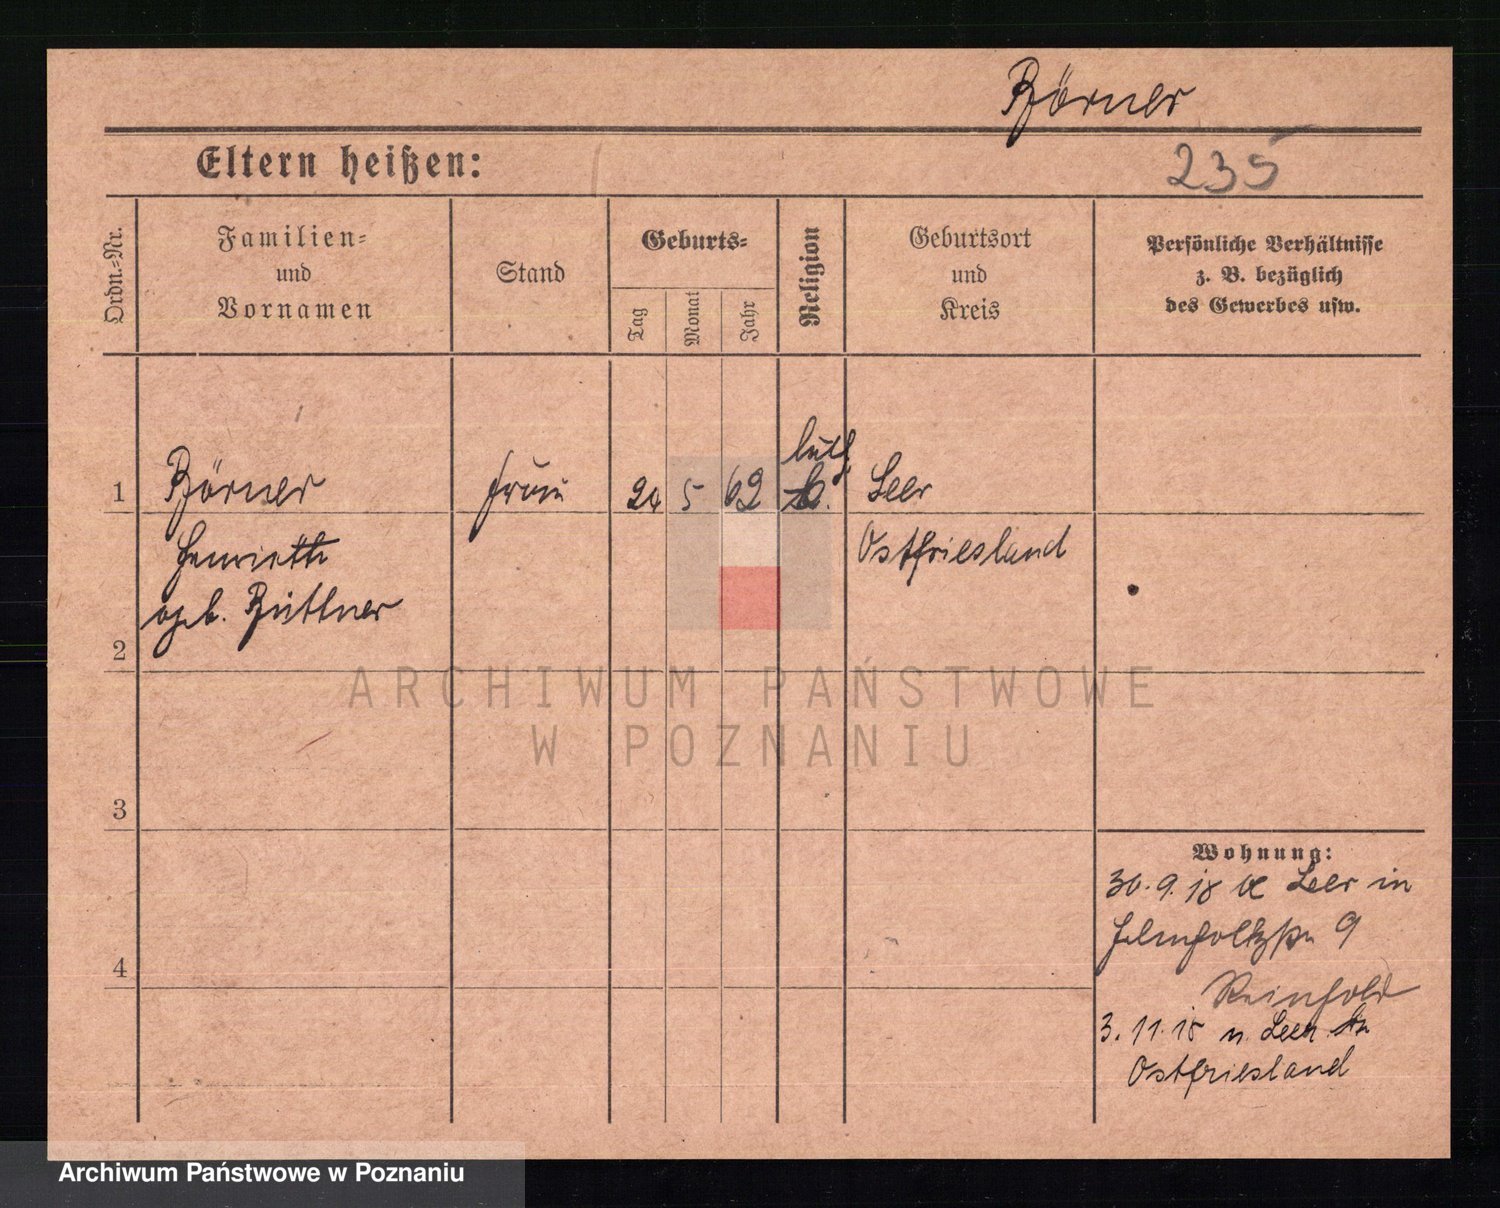 Börner
Eltern heißen:
235
Ordn.-Nr.
Familien-
und
Vornamen
Stand
Geburts-
Tag
Monat
Jahr
Religion
Geburtsort
und
Kreis
Persönliche Verhältnisse
z. B. bezüglich
des Gewerbes usw.
luth
1 Börner Frau 24 5 62 Leer
Henriette Ostfriesland
geb. Büttner
2
ARCHIWUM PAŃSTWOWE
W POZNANIU
3
Wohnung:
30.9.18 Leer in
9
4
Reinhold
3.11.18 n. Leer in
Ostfriesland
Archiwum Państwowe w Poznaniu